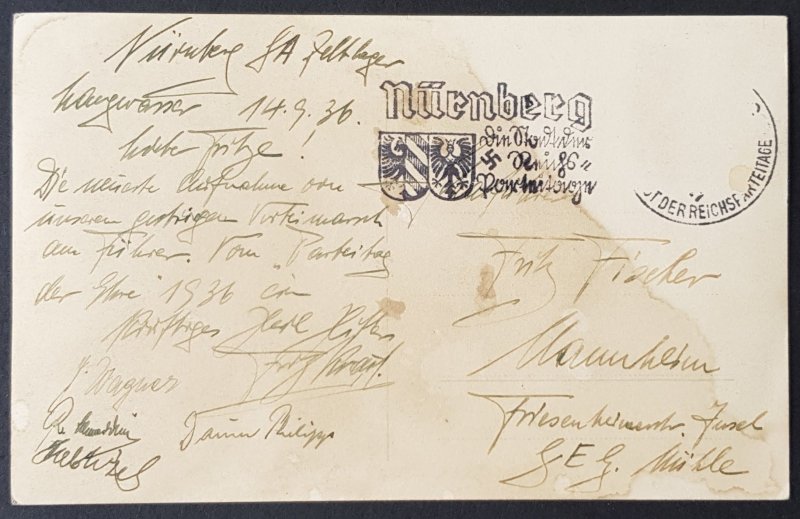 Nürnberg SA Zeltlager
Langwasser 14.9.36.
Lieber Fritze!
Die neueste Aufnahme von
unserem gestrigen Vorbeimarsch
am Führer. Vom "Parteitag
der Ehre" 1936 ein
kräftiges Heil Hitler
Fritz
P. Wagner
Dauer Philipp
Nürnberg
die Stadt der
Reichs-
Parteitage
DER REICHSPARTEITAGE
Fritz Fischer
Mannheim
Friesenheimerstr. Insel
G E G. Mühle